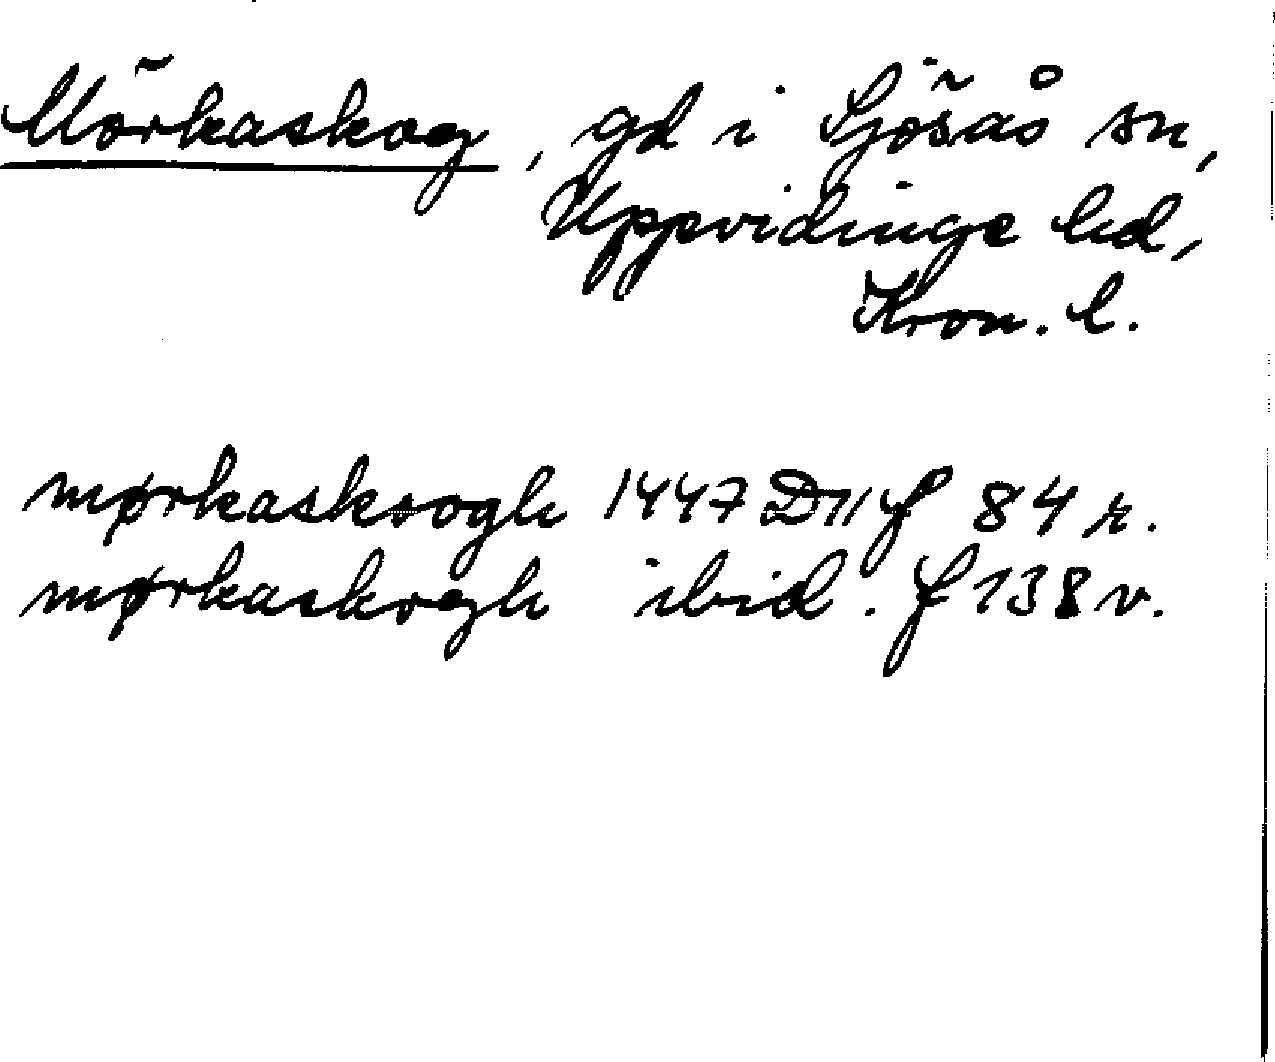 Mörkaskog, gd i Sjösås sn,
Uppvidinge hd,
Kron. l.
mørkaskoogh 1447 D11 f 84 r.
mørkaskogh ibid. f 138 v.